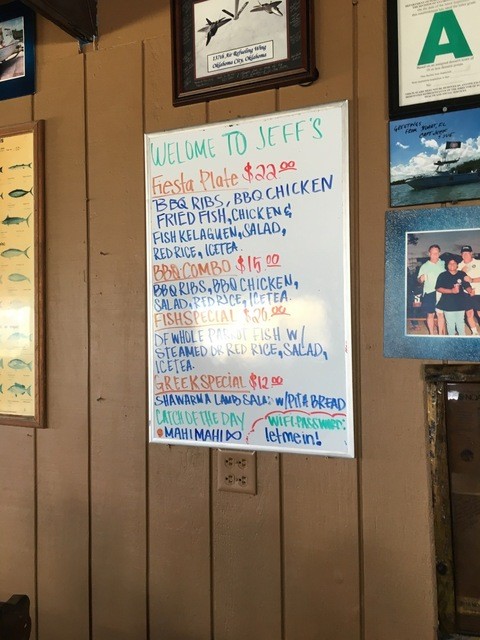 137th Air Refueling Wing
Oklahoma City, Oklahoma
A
WELCOME TO JEFF'S
Fiesta Plate $22.00
BBQ RIBS, BBQ CHICKEN
FRIED FISH, CHICKEN &
FISH KELAGUEN, SALAD,
RED RICE, ICETEA.
BBQ COMBO $15.00
BBQ RIBS, BBQ CHICKEN,
SALAD, RED RICE, ICETEA.
FISH SPECIAL $20.00
DF WHOLE PARROT FISH W/
STEAMED OR RED RICE, SALAD,
ICETEA.
GREEK SPECIAL $12.00
SHAWARMA LAMB SALAD W/PITA BREAD
CATCH OF THE DAY
• MAHI MAHI
WIFI-PASSWORD:
letmein!